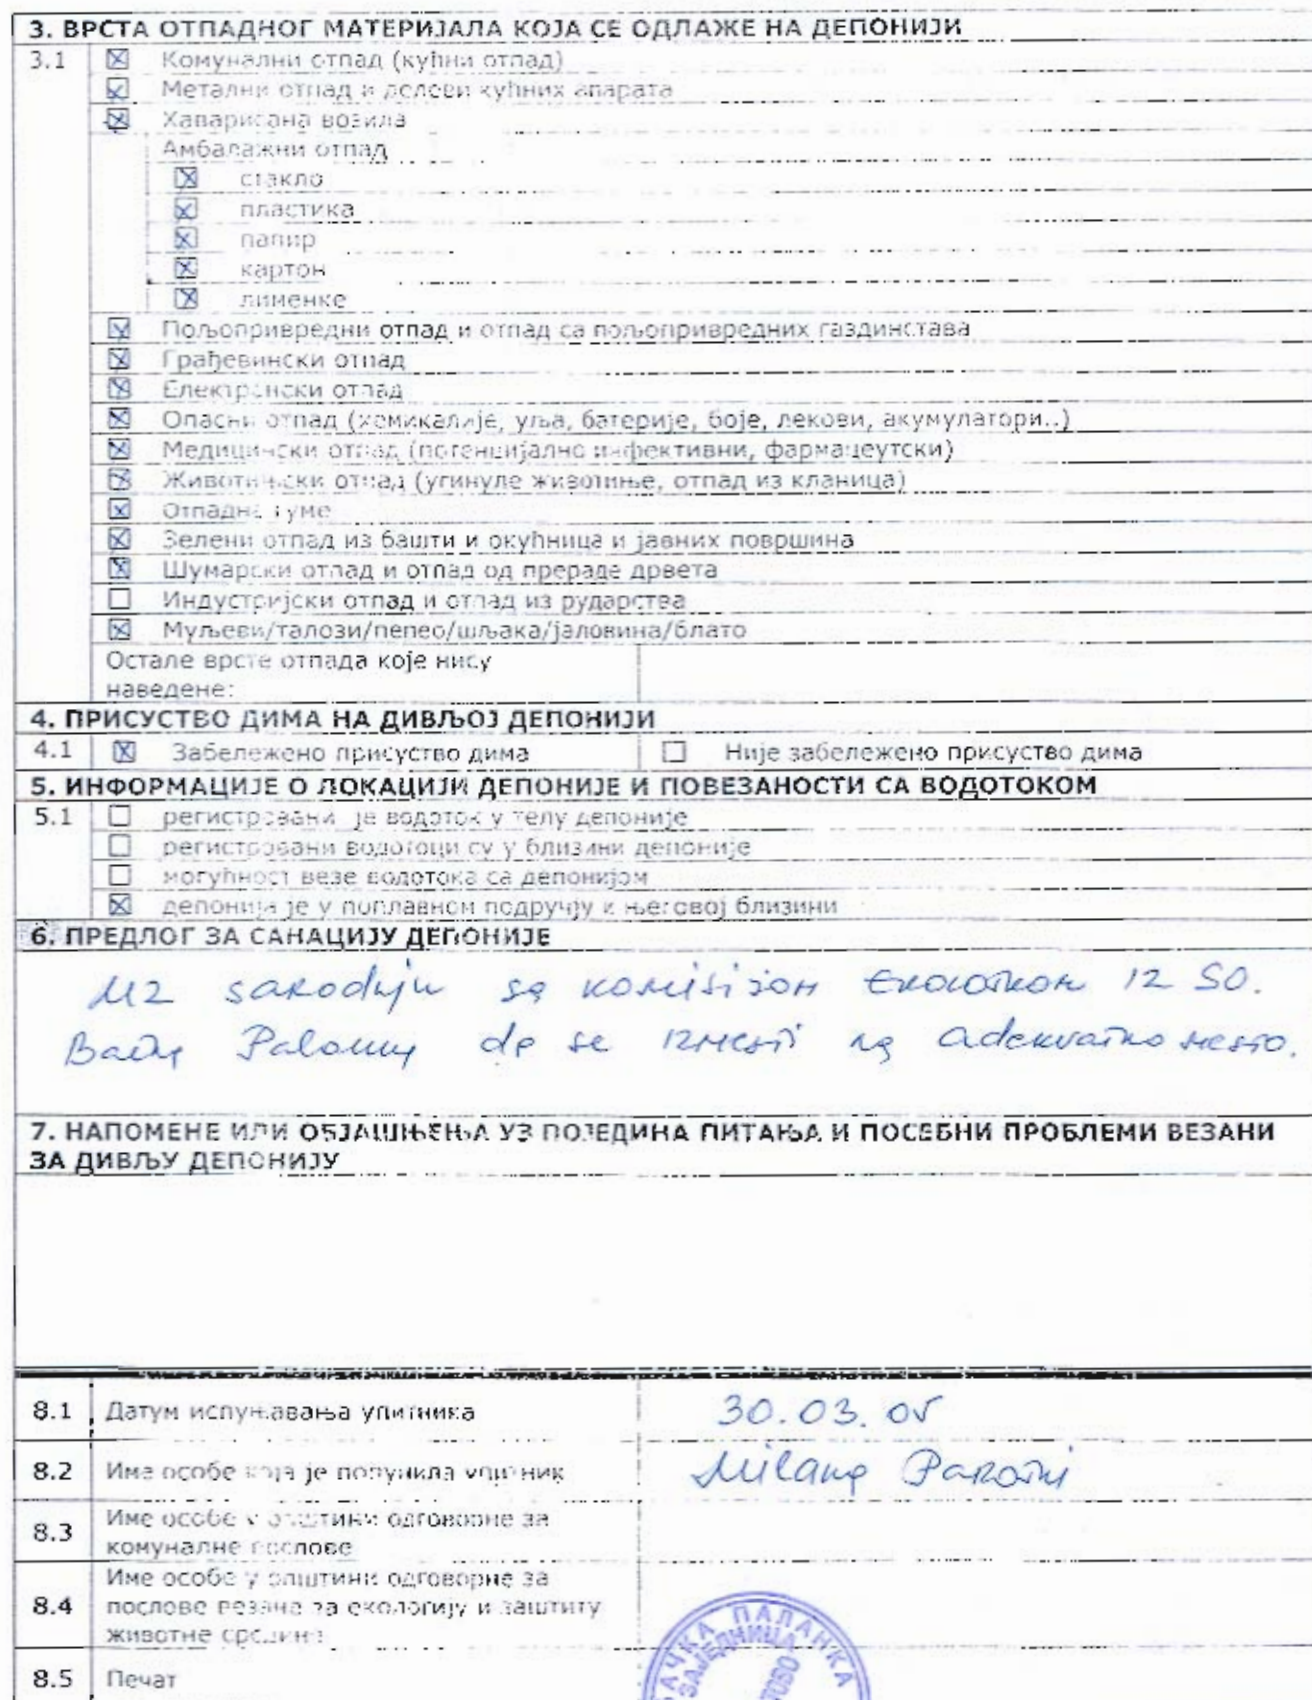 3. ВРСТА ОТПАДНОГ МАТЕРИЈАЛА КОЈА СЕ ОДЛАЖЕ НА ДЕПОНИЈИ
3.1 ☒ Комунални отпад (кућни отпад)
☒ Метални отпад и делови кућних апарата
☒ Хаварисана возила
Амбалажни отпад
☒ стакло
☒ пластика
☒ папир
☒ картон
☒ лименке
☒ Пољопривредни отпад и отпад са пољопривредних газдинстава
☒ Грађевински отпад
☒ Електронски отпад
☒ Опасни отпад (хемикалије, уља, батерије, боје, лекови, акумулатори..)
☒ Медицински отпад (потенцијално инфективни, фармацеутски)
☒ Животињски отпад (угинуле животиње, отпад из кланица)
☒ Отпадне гуме
☒ Зелени отпад из башти и окућница и јавних површина
☒ Шумарски отпад и отпад од прераде дрвета
☐ Индустријски отпад и отпад из рударства
☒ Муљеви/талози/пепео/шљака/јаловина/блато
Остале врсте отпада које нису
наведене:
4. ПРИСУСТВО ДИМА НА ДИВЉОЈ ДЕПОНИЈИ
4.1 ☒ Забележено присуство дима ☐ Није забележено присуство дима
5. ИНФОРМАЦИЈЕ О ЛОКАЦИЈИ ДЕПОНИЈЕ И ПОВЕЗАНОСТИ СА ВОДОТОКОМ
5.1 ☐ регистровани је водоток у телу депоније
☐ регистровани водотоци су у близини депоније
☐ могућност везе водотока са депонијом
☒ депонија је у поплавном подручју и његовој близини
6. ПРЕДЛОГ ЗА САНАЦИЈУ ДЕПОНИЈЕ
12 SO.
da se na adekvatno mesto.
7. НАПОМЕНЕ ИЛИ ОБЈАШЊЕЊА УЗ ПОЈЕДИНА ПИТАЊА И ПОСЕБНИ ПРОБЛЕМИ ВЕЗАНИ
ЗА ДИВЉУ ДЕПОНИЈУ
8.1 Датум испуњавања упитника 30.03.05
8.2 Име особе која је попунила упитник Milana
8.3 Име особе у општини одговорне за
комуналне послове
8.4 Име особе у општини одговорне за
послове везане за екологију и заштиту
животне средине
8.5 Печат
ПАЛАНКА
ЗАЈЕДНИЦА